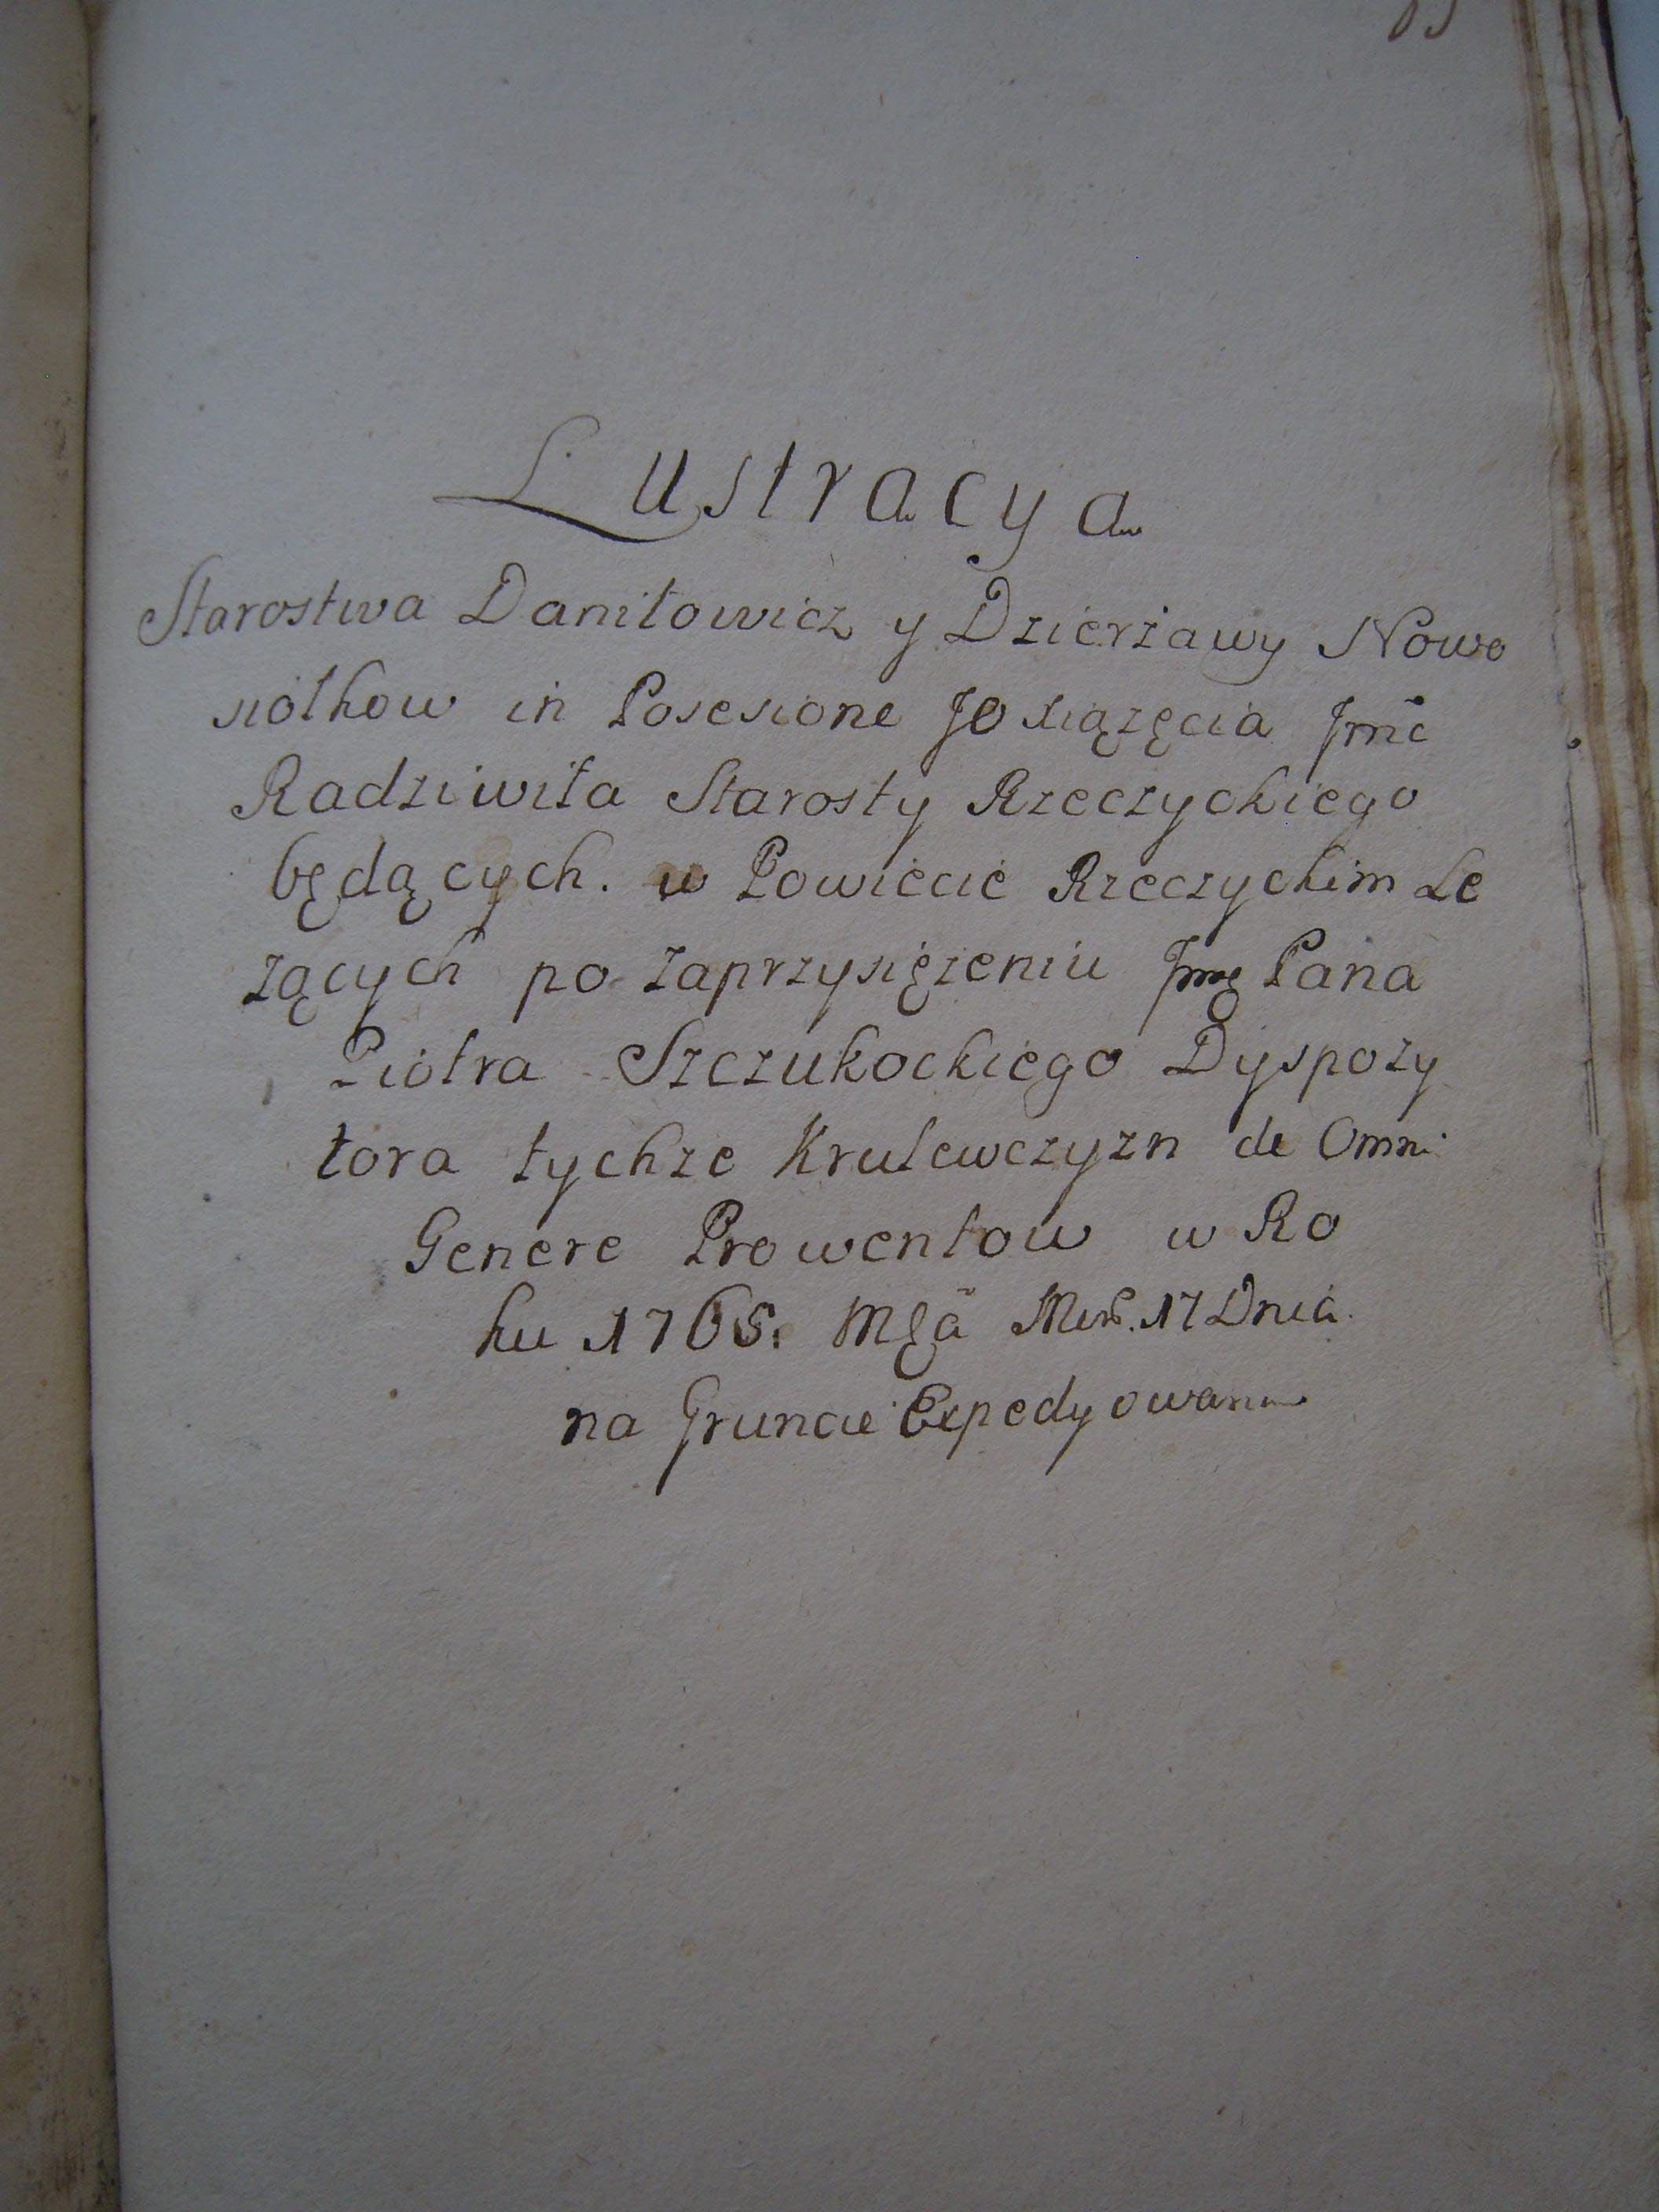 Lustracya
Starostwa Daniłowicz y Dzierżawy Nowo
siołkow in Posesione JO Xiążęcia Jmc̃
Radziwiła Starosty Rzeczyckiego
będących. w Powiecie Rzeczyckim Le
żących po zaprzysiężeniu Jmę Pana
Piotra Szczukockiego Dyspozy
tora tychże Krulewczyzn de Omni
Genere Prowentow w Ro
ku 1765. Mca 17 Dnia
na Gruncie Expedyowana